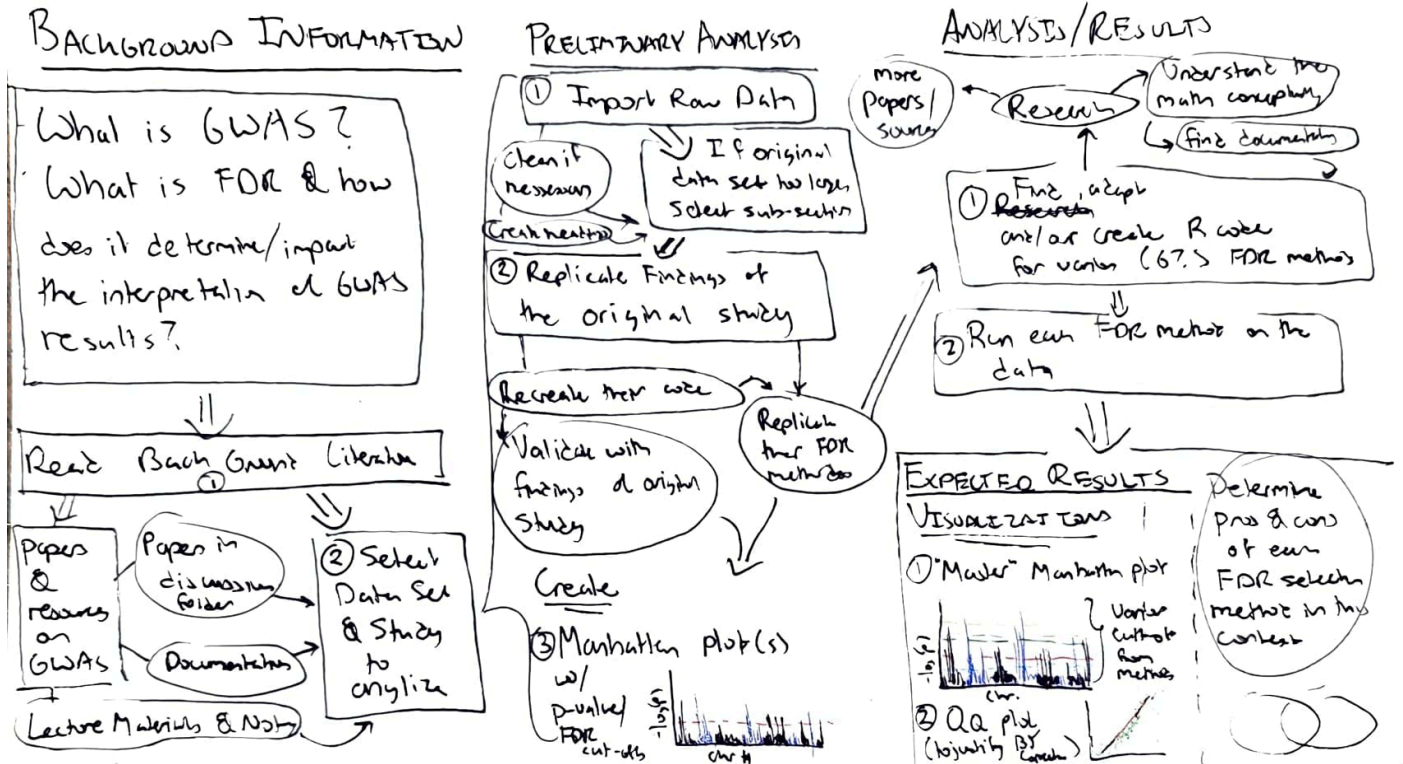 BACKGROUND INFORMATION
What is GWAS?
What is FDR & how
does it determine/impact
the interpretation of GWAS
results?
Read Back Grund Literature
①
papers
&
resources
on
GWAS
Papers in
discussion
folder
Documentation
Lecture Materials & Notes
② Select
Data Set
& Study
to
anylize
PRELIMINARY ANALYSIS
① Import Raw Data
Clean if
nessessary
If original
data set too large
Select sub-section
Create
② Replicate Findings of
the original study
Recreate their code
Validate with
findings of original
Study
Replicate
their FDR
methods
Create
③ Manhattan plot(s)
w/
p-value/
FDR
cut-offs
-log(p)
chr #
ANALYSIS/RESULTS
more
papers/
sources
Research
Understand the
math conceptually
find documentation
① Find, adapt
Research
and/or create R code
for various (6?) FDR methods
② Run each FDR method on the
data
EXPECTED RESULTS
VISUALIZATIONS
① "Master" Manhattan plot
-log(p)
chr.
Various
cutoffs
from
methods
② QQ plot
Determine
pros & cons
of each
FDR selection
method in this
context